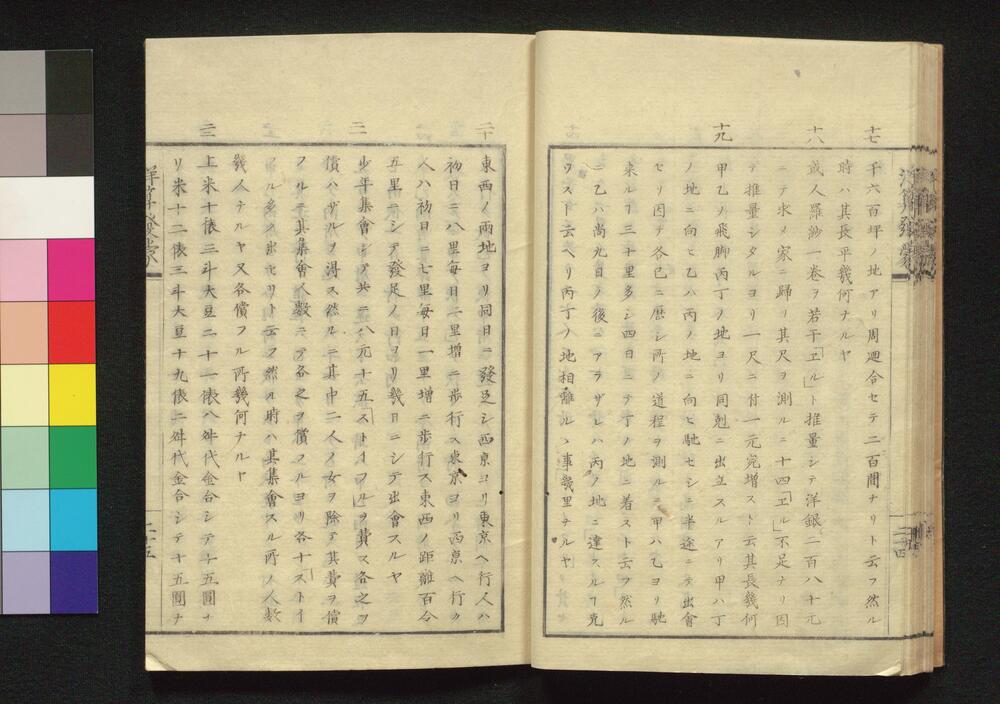 十七
千六百坪ノ地アリ周廻合セテ二百間ナリト云フ然ル
時ハ其長平幾何ナルヤ
十八
或人羅紗一巻ヲ若干「ヱル」ト推量シテ洋銀二百八十元
ニテ求メ家ニ歸リ其尺ヲ測ルニ十四「ヱル」不足ナリ因
テ推量シタルヨリ一尺ニ付一元宛増スト云其長幾何
十九
甲乙ノ飛脚丙丁ノ地ヨリ同剋ニ出立スルアリ甲ハ丁
ノ地ニ向ヒ乙ハ丙ノ地ニ向ヒ馳セシニ半途ニテ出會
セリ因テ各已ニ歴シ所ノ道程ヲ測ルニ甲ハ乙ヨリ馳
来ルヿ三十里多シ四日ニテ丁ノ地ニ着スト云フ然ル
ニ乙ハ尚九日ノ後ニアラザレハ丙ノ地ニ達スルヿ克
ワスト云ヘリ丙丁ノ地相離ルヽ事幾里ナルヤ
洋算發蒙
二十四
二十
東西ノ兩地ヨリ同日ニ發足シ西京ヨリ東京ヘ行人ハ
初日ニ八里毎日二里増ニ歩行ス東京ヨリ西京ヘ行ク
人ハ初日ニ七里毎日一里増ニ歩行ス東西ノ距離百令
五里ニシテ發足ノ日ヨリ幾日ニシテ出會スルヤ
二一
少年集會シテ共ニ八元十五「ストイフル」ヲ費ス各之ヲ
償ハザルヲ得ス然ルニ其中二人ノ女ヲ除テ其費ヲ償
フルニ其集會人數ニテ各之ヲ償フルヨリ各十「ストイ
フル多ク出セリト云フ然ル時ハ其集會スル所ノ人數
幾人ナルヤ又各償フル所幾何ナルヤ
二二
上米十俵三斗大豆二十一俵八舛代金合シテ十五圓ナ
リ米十二俵三斗大豆十九俵二舛代金合シテ十五圓ナ
洋算發蒙
二十五